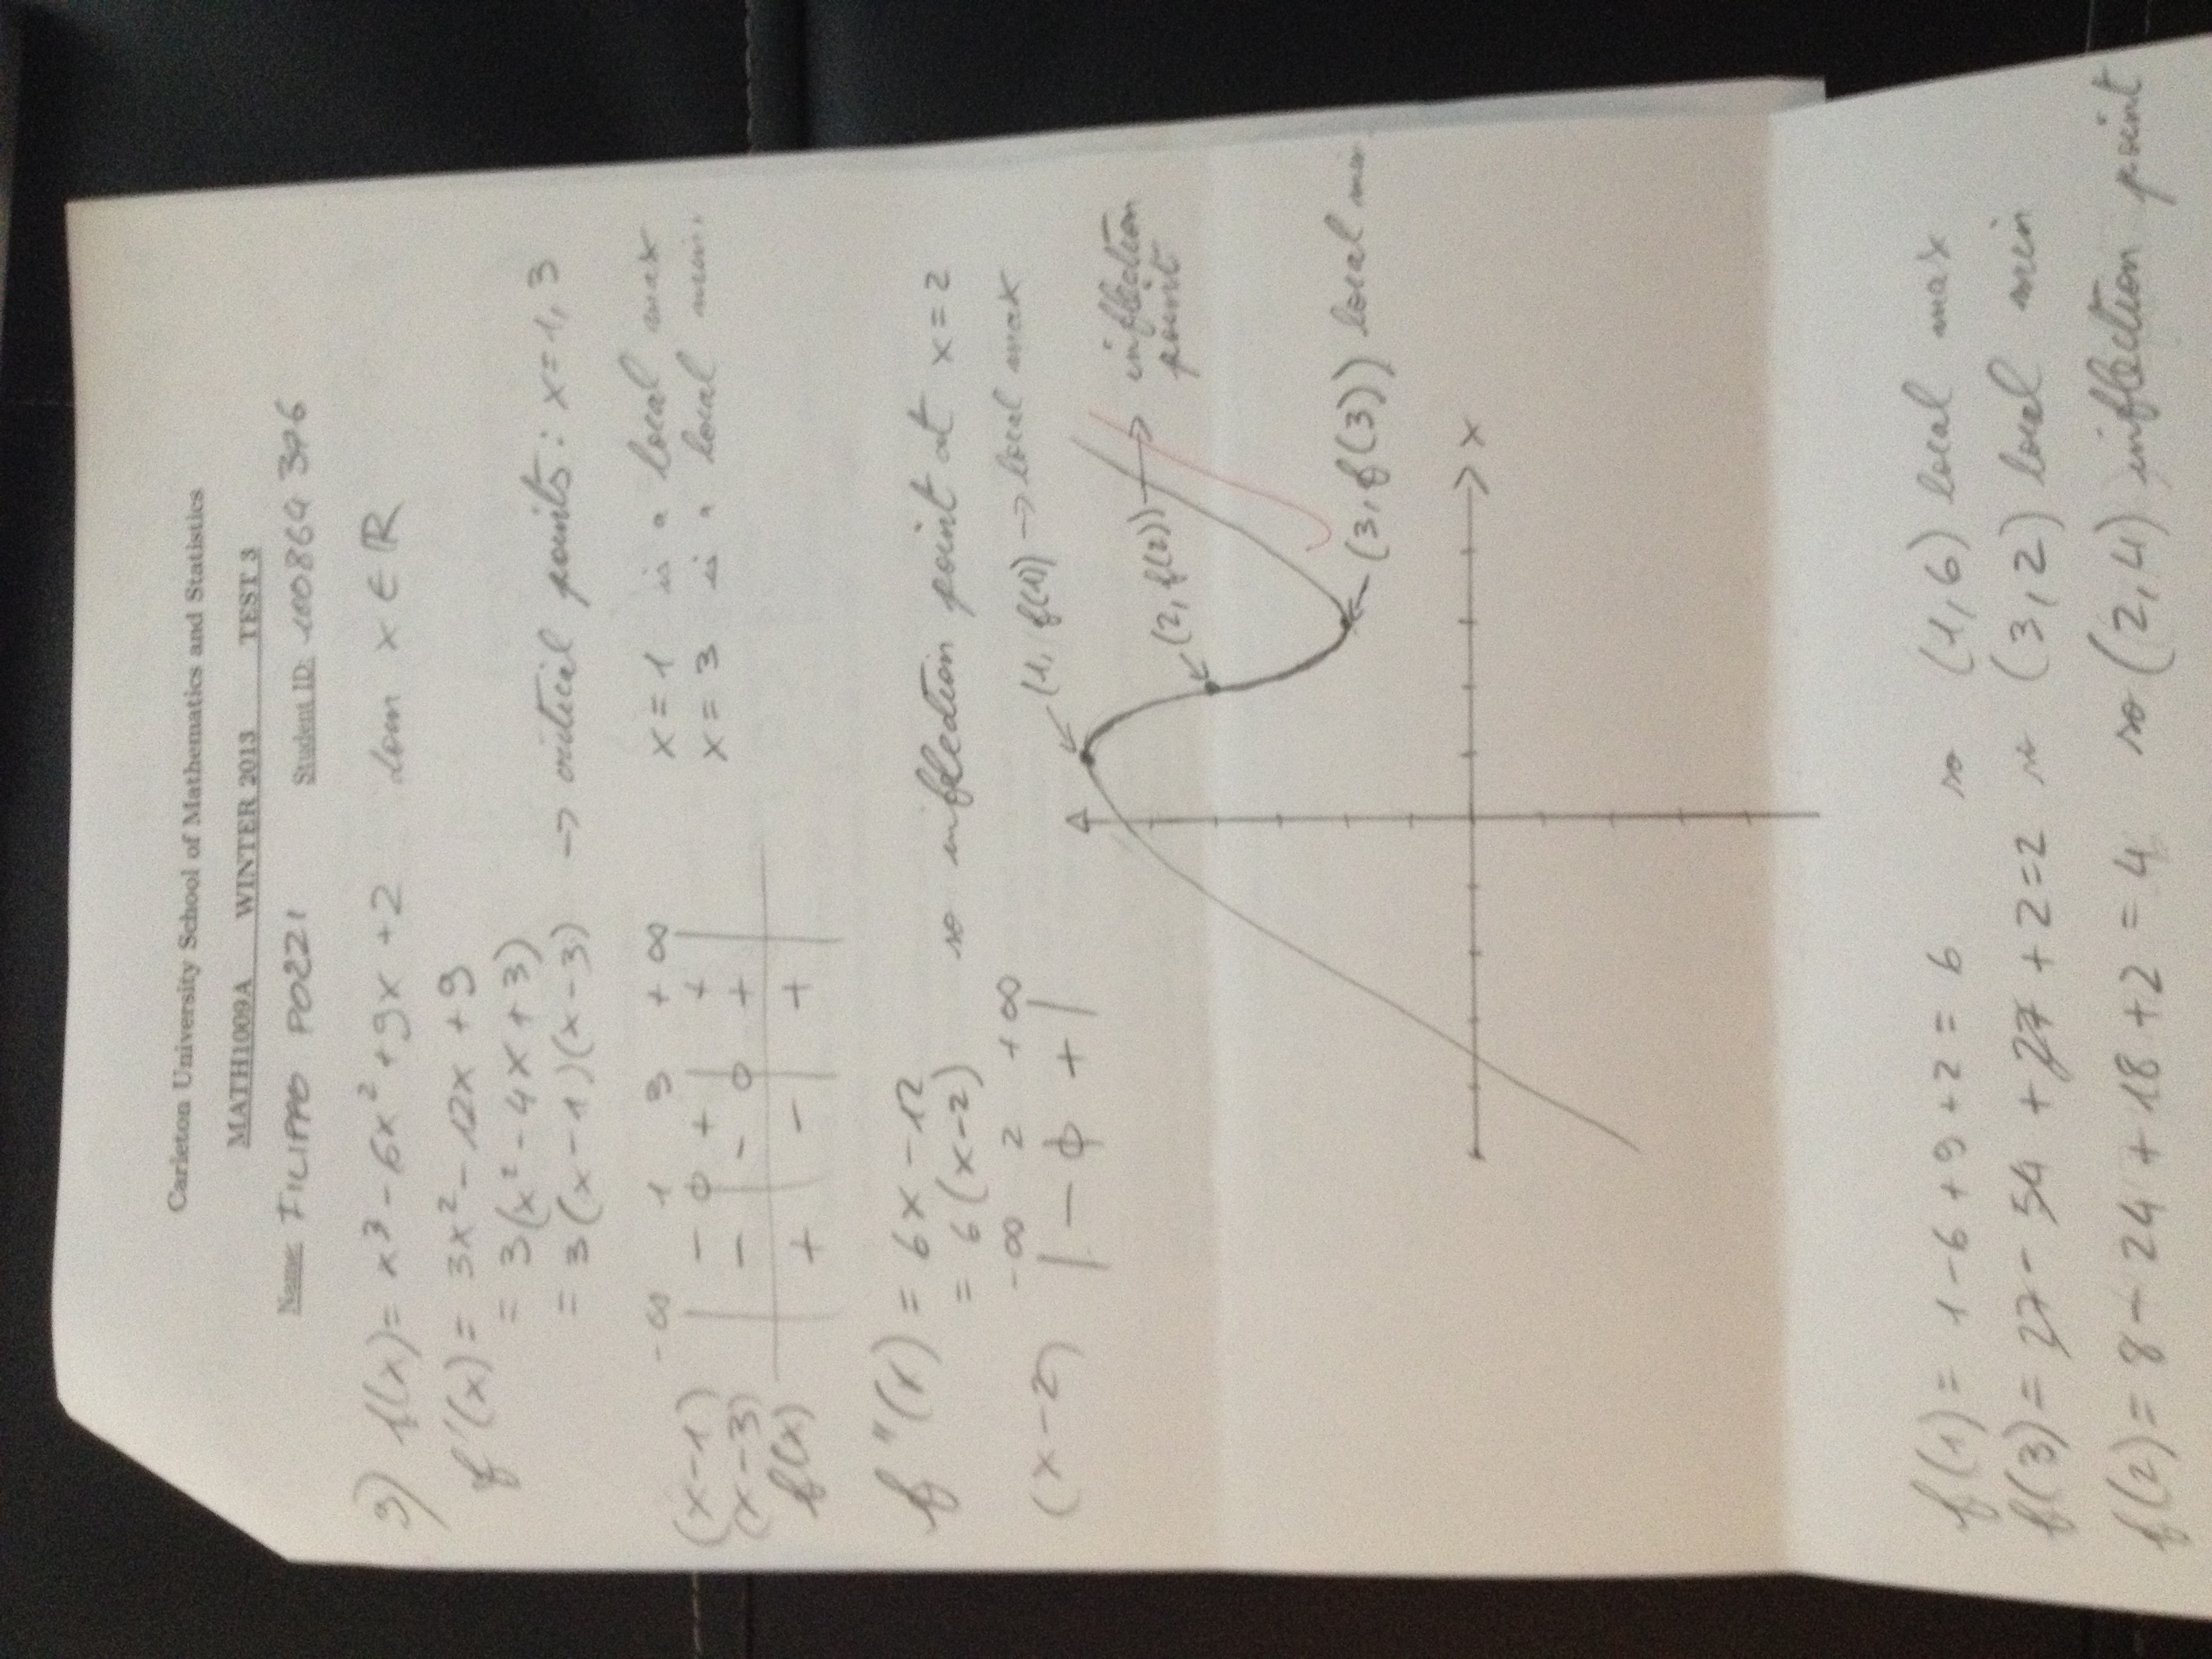 Carleton University School of Mathematics and Statistics
MATH1009A WINTER 2013 TEST 3
Name: FILIPPO POZZI Student ID: 100864396
3) f(x) = x³ - 6x² + 9x + 2 dom x ∈ ℝ
f'(x) = 3x² - 12x + 9
= 3(x² - 4x + 3)
= 3(x - 1)(x - 3) → critical points: x = 1, 3
-∞ 1 3 +∞
(x-1) - 0 + + x = 1 is a local max
(x-3) - - 0 + x = 3 is a local min.
f(x) + - +
f''(x) = 6x - 12
= 6(x-2) so inflection point at x = 2
-∞ 2 +∞
(x-2) | - 0 + |
(1, f(1)) → local max
(2, f(2)) → inflection
point
(3, f(3)) local min
x
f(1) = 1 - 6 + 9 + 2 = 6 so (1, 6) local max
f(3) = 27 - 54 + 27 + 2 = 2 so (3, 2) local min
f(2) = 8 - 24 + 18 + 2 = 4 so (2, 4) inflection point